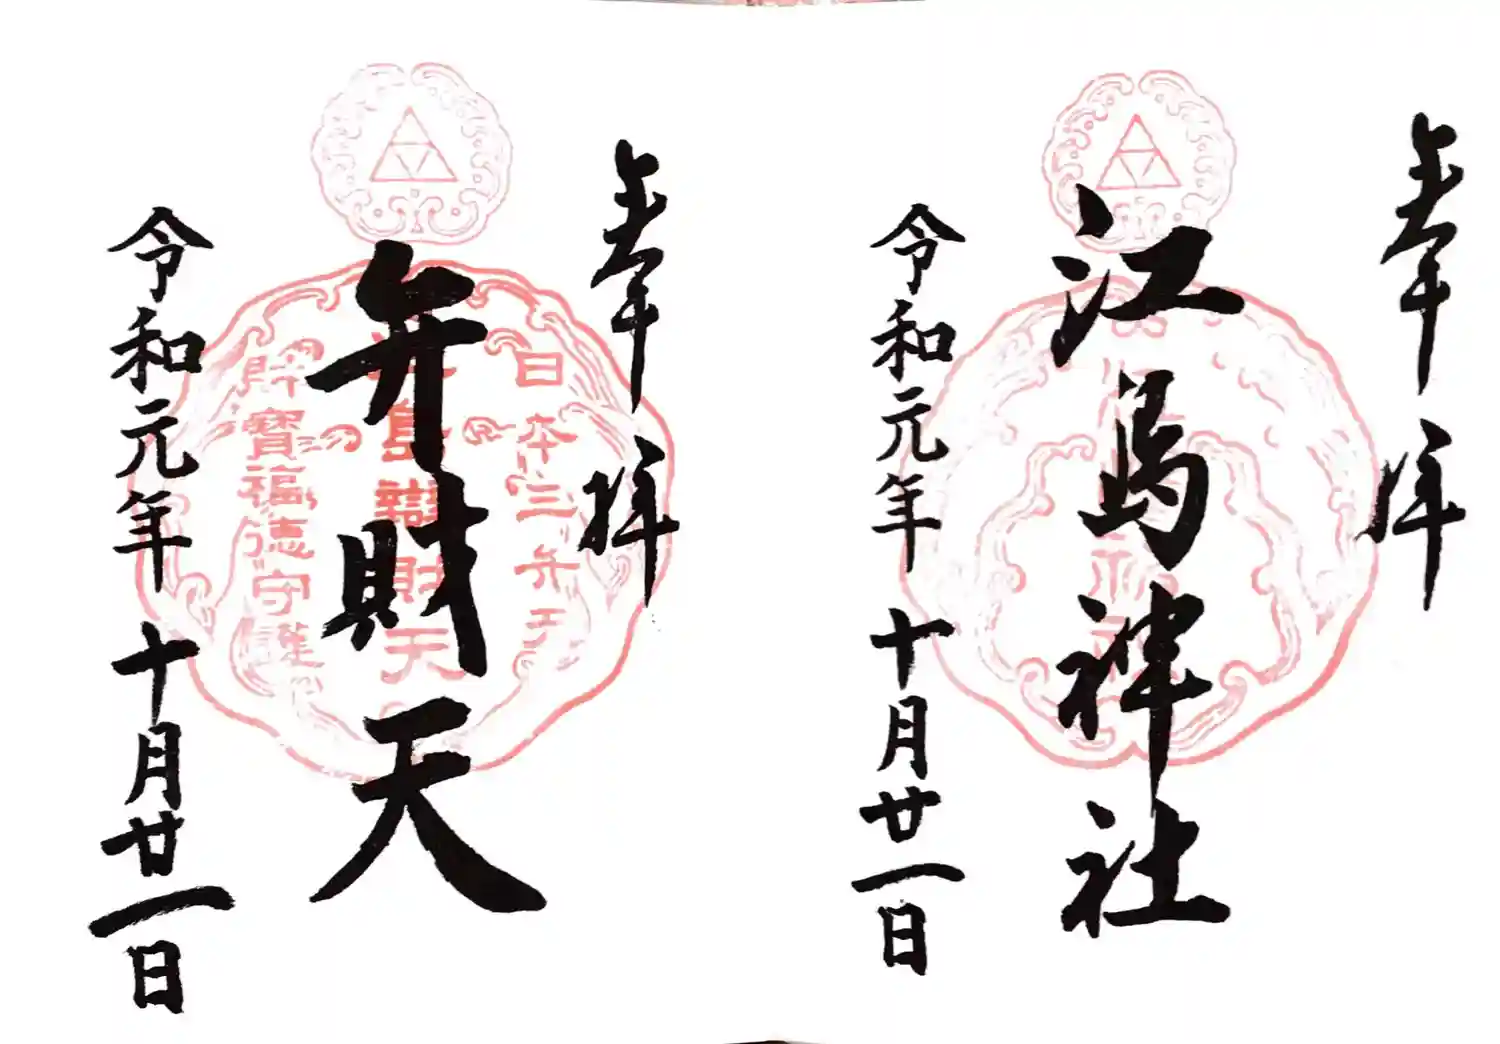 奉拝
江島神社
令和元年十月廿一日
奉拝
弁財天
令和元年十月廿一日
日本三弁天
江島辯財天
財寶福徳守護